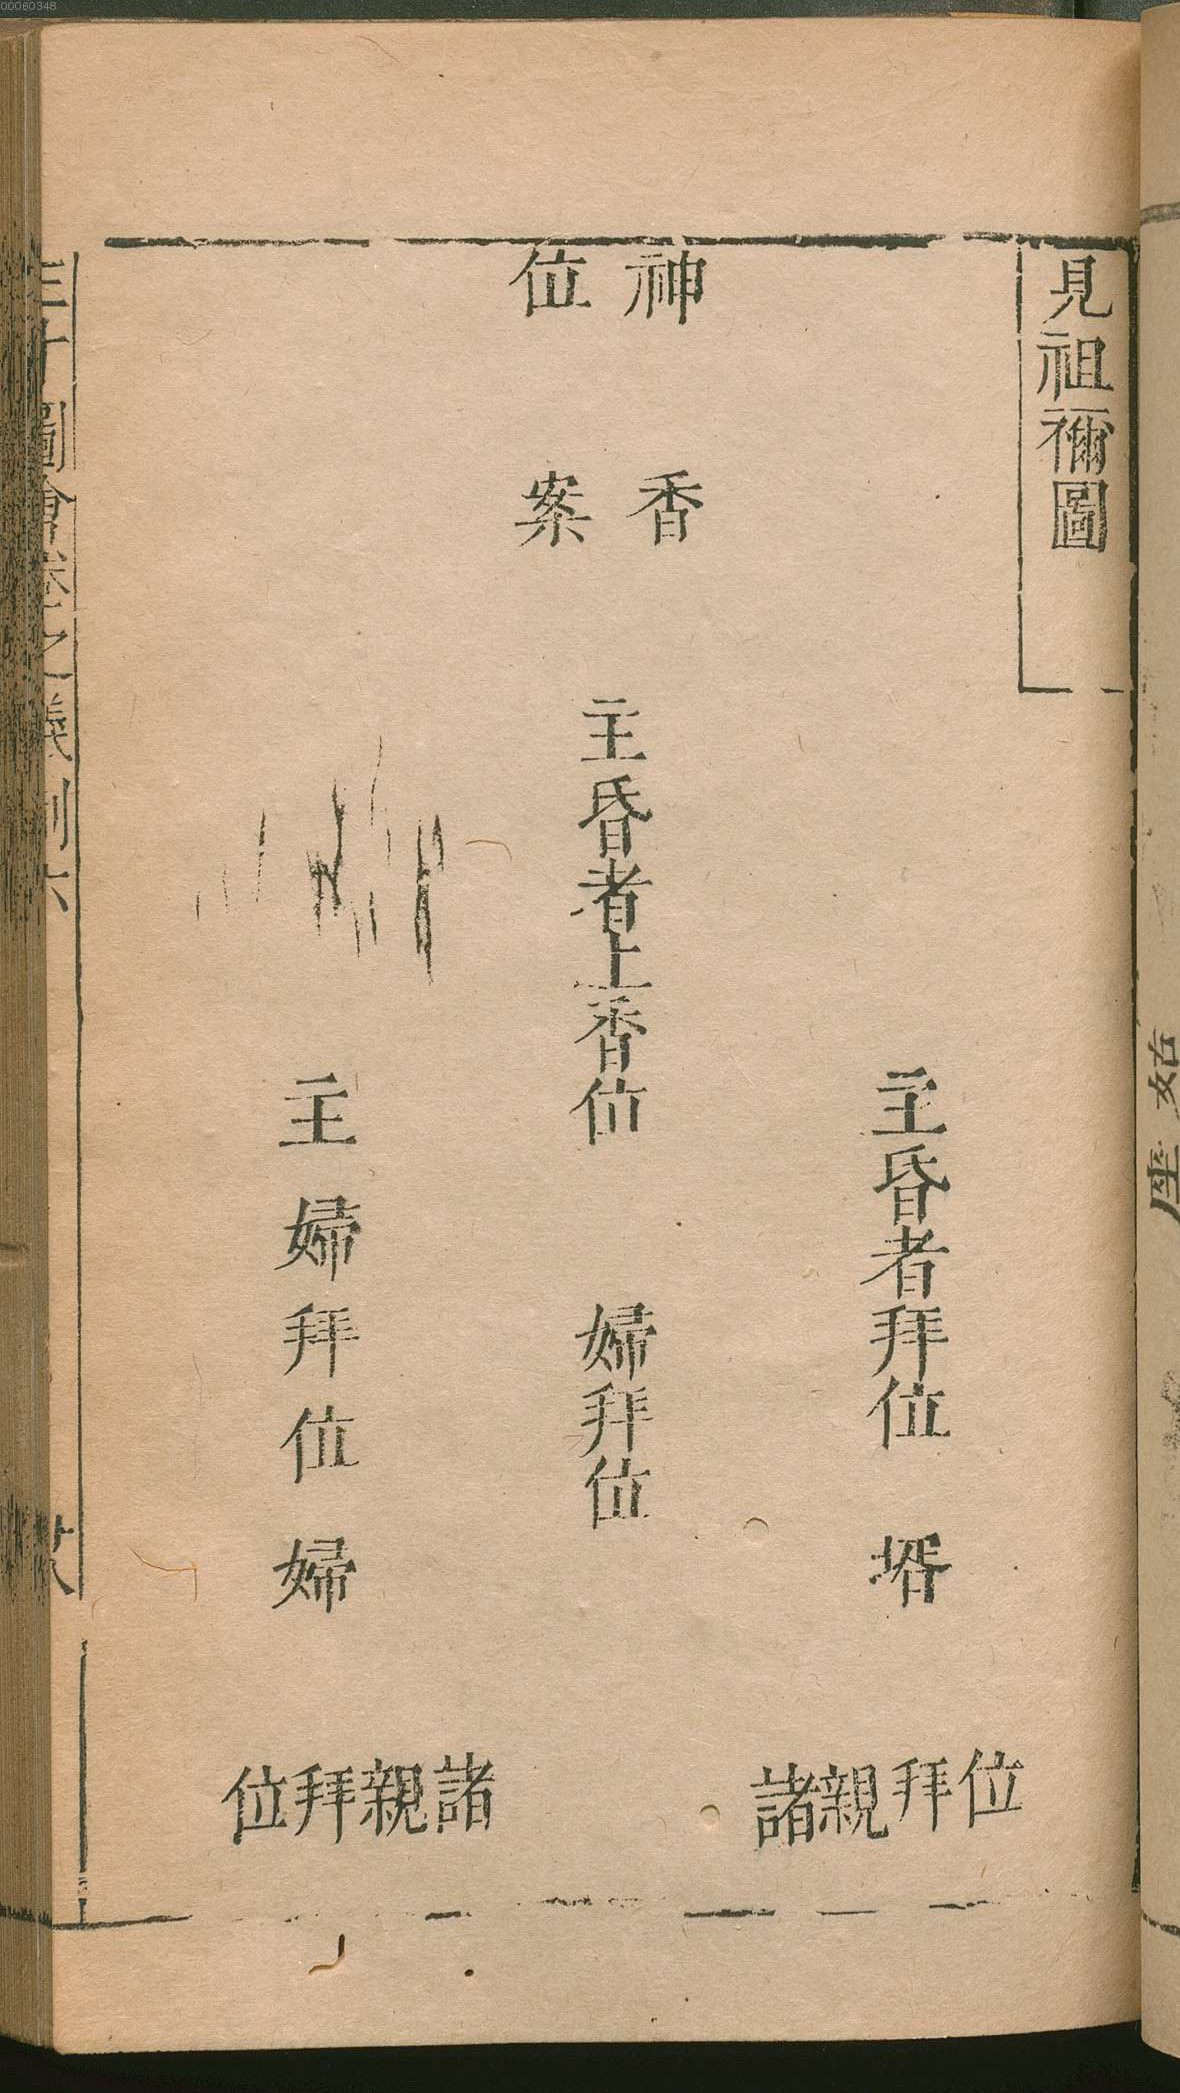 00060348
見祖禰圖
神位
香案
主昏者上香位
主昏者拜位
壻
婦拜位
主婦拜位
婦
諸親拜位
諸親拜位
三才圖會卷之儀制六